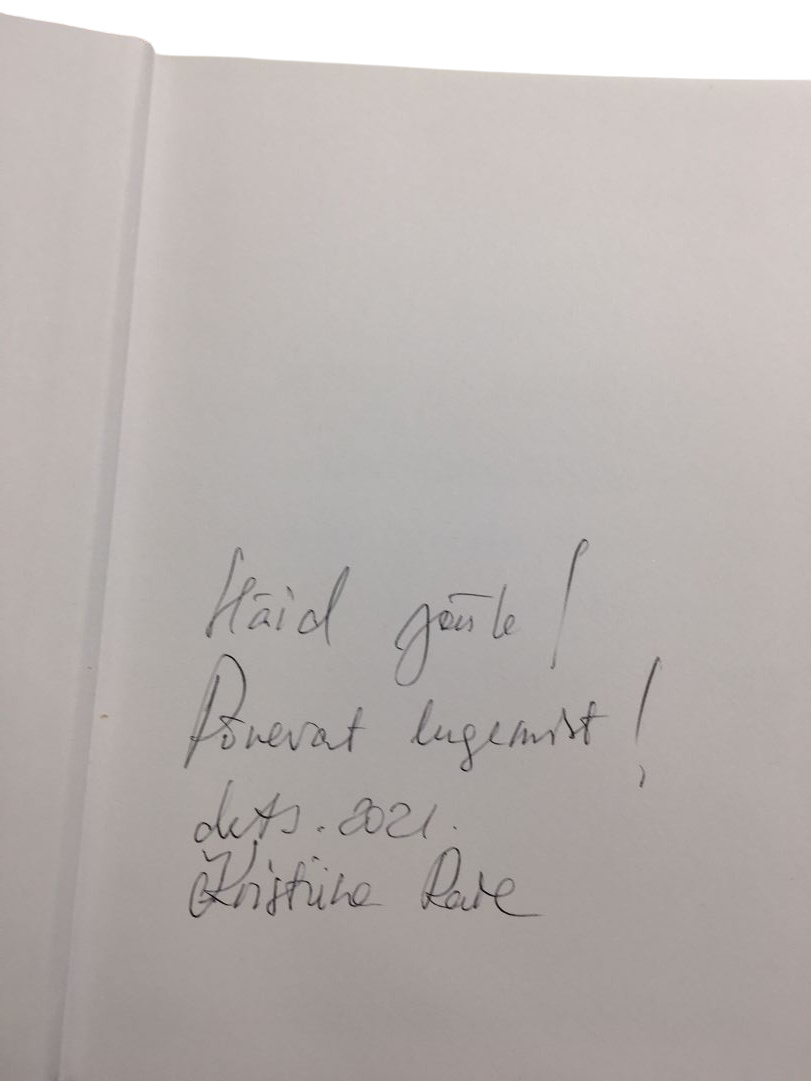 Häid jõule!
Põnevat lugemist!
dets. 2021.
Kristiina